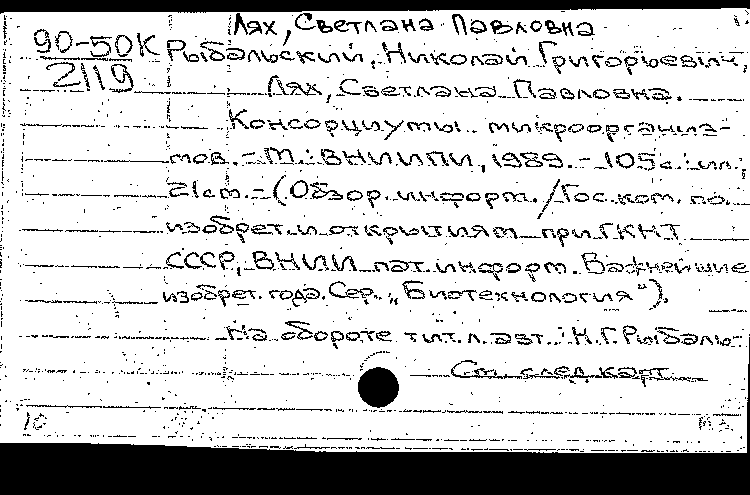 Лях, Светлана Павловна
90-50К
2119
Рыбальский, Николай Григорьевич,
Лях, Светлана Павловна.
Консорциумы микроорганиз-
мов. - М.: ВНИИПИ, 1989. - 105 с.: ил.;
21 см. - (Обзор. информ. / Гос. ком. по
изобрет. и открытиям при ГКНТ
СССР, ВНИИ пат. информ. Важнейшие
изобрет. года. Сер. „Биотехнология").
На обороте тит. л. авт.: Н.Г. Рыбаль-
См. след. карт.
10